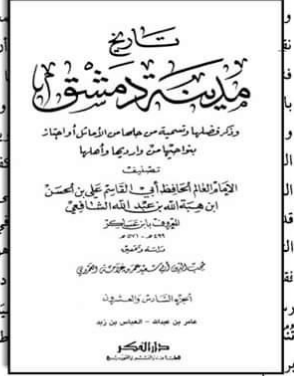 تاريخ
مدينة دمشق
وذكر فضلها وتسمية من حلها من الأماثل أو اجتاز
بنواحيها من وارديها وأهلها
تصنيف
الإمام العالم الحافظ أبي القاسم علي بن الحسن
ابن هبة الله بن عبد الله الشافعي
المعروف بابن عساكر
٤٩٩ هـ - ٥٧١ هـ
دراسة وتحقيق
محب الدين أبي سعيد عمر بن غرامة العمروي
الجزء السادس والعشرون
عامر بن عبدالله - العباس بن زيد
دار الفكر
للطباعة والنشر والتوزيع